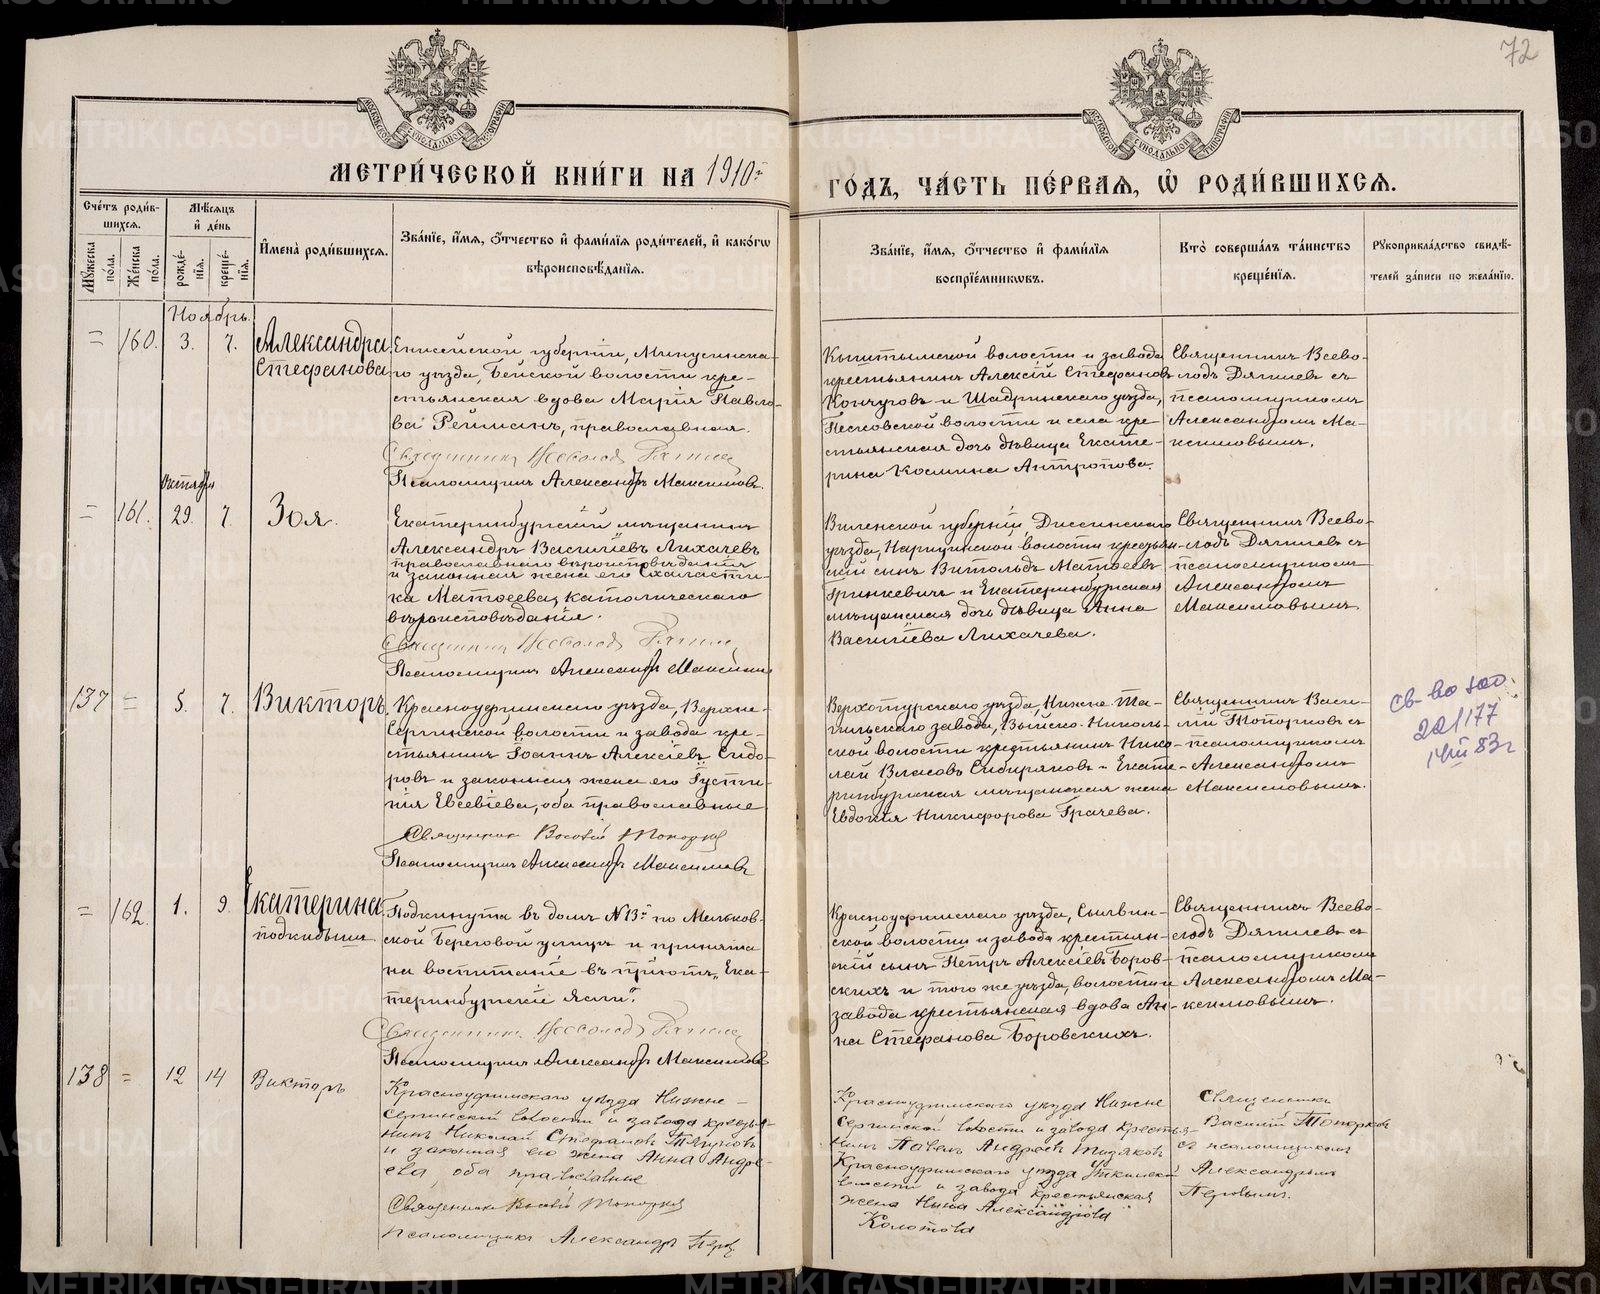 72
МЕТРИ́ЧЕСКОЙ КНИ́ГИ НА 1910й
ГО́ДЪ, ЧА́СТЬ ПЕ́РВАЯ, Ѡ҆ РОДИ́ВШИХСЯ.
Сче́тъ роди́в-
шихся.
Мѣ́сяцъ
и҆ де́нь
Мꙋ́жеска
по́ла.
Же́нска
по́ла.
рожде́-
нїя.
креще́-
нїя.
И҆мена̀ роди́вшихся.
Зва́нїе, и҆́мя, ѻ҆́тчество и҆ фами́лїя роди́телей, и҆ како́гѡ
вѣроисповѣ́данїя.
Зва́нїе, и҆́мя, ѻ҆́тчество и҆ фами́лїя
воспрїе́мникѡвъ.
Кто̀ соверша́лъ та́инство
креще́нїя.
Рꙋкоприкла́дство свидѣ́-
телей за́писи по жела́нїю.
Ноябрь.
= 160. 3. 7. Александра
Стефанова
Енисейской губернiи, Минусинска-
го уѣзда, Бейской волости кре-
стьянская вдова Марiя Павло-
ва Рейманъ, православная.
Священникъ Всеволодъ
Псаломщикъ Александръ Максимовъ.
Кыштымской волости и завода
крестьянинъ Алексiй Стефановъ
Кончуговъ и Шадринскаго уѣзда,
Песковской волости и села кре
стьянская дочь дѣвица Екате-
рина Космина Антропова.
Священникъ Всево-
лодъ съ
псаломщикомъ
Александромъ Ма-
ксимовымъ.
Октября
= 161. 29. 7. Зоя.
Екатеринбургскiй мѣщанинъ
Александръ Василiевъ Лихачевъ
православнаго вѣроисповѣданiя
и законная жена его Схоласти-
ка Матѳеева, католическаго
вѣроисповѣданiя.
Священникъ Всеволодъ
Псаломщикъ Александръ Максимовъ
Виленской губернiи, Диснинскаго
уѣзда, волости крестьян-
скiй сынъ Витольдъ Матѳеевъ
Гринкевичъ и Екатеринбургская
мѣщанская дочь дѣвица Анна
Василiева Лихачева.
Священникъ Всево-
лодъ съ
псаломщикомъ
Александромъ
Максимовымъ.
137 = 5. 7. Викторъ.
Красноуфимскаго уѣзда, Верхне-
Сергинской волости и завода кре-
стьянинъ Iоаннъ Алексiевъ Сидо-
ровъ и законная жена его Iусти-
нiя Евсевiева, оба православные
Священникъ Василiй Топорковъ
Псаломщикъ Александръ Максимовъ
Верхотурскаго уѣзда, Нижне-Та-
гильскаго завода, Выйско-Николь-
ской волости крестьянинъ Нико-
лай Власовъ Сибиряковъ и Екате-
ринбургская мѣщанская жена
Евдокiя Никифорова Грачева.
Священникъ Васи-
лiй Топорковъ съ
псаломщикомъ
Александромъ
Максимовымъ.
св-во
221177
14 III 83г
= 162. 1. 9. Екатерина
подкидышъ
Подкинута въ домъ №13й по Мельков-
ской Береговой улицѣ и принята
на воспитанiе въ прiютъ „Ека-
теринбургскiе ясли“.
Священникъ Всеволодъ
Псаломщикъ Александръ Максимовъ
Красноуфимскаго уѣзда, Сылвин-
ской волости и завода крестьян-
скiй сынъ Петръ Алексiевъ Боров-
скихъ и того же уѣзда, волости и
завода крестьянская вдова Ан-
на Стефанова Боровскихъ.
Священникъ Всево-
лодъ съ
псаломщикомъ
Александромъ Ма-
ксимовымъ.
138 = 12 14 Викторъ
Красноуфимскаго уѣзда Нижне-
Сергинской волости и завода крестья-
нинъ Николай Стефановъ
и законная его жена Анна Андре-
ева, оба православные
Священникъ Василiй Топорковъ
Псаломщикъ Александръ Перовъ
Красноуфимскаго уѣзда Нижне
Сергинской волости и завода крестья-
нинъ Павелъ Андреевъ
Красноуфимскаго уѣзда Уткинской
волости и завода крестьянская
жена Нина Александрова
Колотова
Священникъ
Василiй Топорковъ
съ псаломщикомъ
Александромъ
Перовымъ.
METRIKI.GASO-URAL.RU